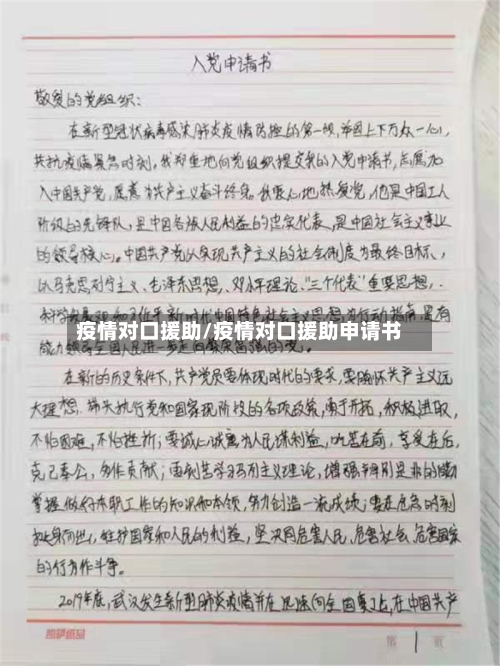 入党申请书
敬爱的党组织：
在新型冠状病毒感染肺炎疫情防控的第一线，举国上下万众一心，
共抗疫情紧急时刻，我郑重地向党组织提交我的入党申请书，志愿加
入中国共产党，愿意为共产主义奋斗终身。我衷心地热爱党，他是中国工人
阶级的先锋队，是中国各族人民利益的忠实代表，是中国社会主义事业
的领导核心。中国共产党以实现共产主义的社会制度为最终目标，
以马克思列宁主义、毛泽东思想、邓小平理论、“三个代表”重要思想、
疫情对口援助/疫情对口援助申请书
在新的历史条件下，共产党员要体现时代的要求，要胸怀共产主义远
大理想，带头执行党和国家现阶段的各项政策，勇于开拓，积极进取，
不怕困难，不怕挫折；要诚心诚意为人民谋利益，吃苦在前，享受在后，
克己奉公，多作贡献；要刻苦学习马列主义理论，增强辨别是非的能力
掌握做好本职工作的知识和本领，努力创造一流成绩；要在危急时刻
挺身而出，维护国家和人民的利益，坚决同危害人民、危害社会、危害国家
的行为作斗争。
2019年底，武汉发生新型肺炎疫情并在迅速向全国蔓延，在中国共产
凯萨纸品
第 1 页